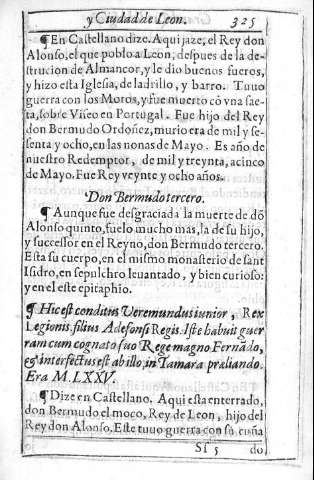 y Ciudad de Leon. 325
¶ En Castellano dize. Aqui jaze, el Rey don
Alonso. el que poblo a Leon, despues de la de-
strucion de Almancor, y le dio buenos fueros,
y hizo esta Iglesia, de ladrillo, y barro. Tuuo
guerra con los Moros, y fue muerto cõ vna sae-
ta, sobre Viseo en Portugal. Fue hijo del Rey
don Bermudo Ordoñez, murio era de mil y se-
senta y ocho, en las nonas de Mayo. Es año de
nuestro Redemptor, de mil y treynta, a cinco
de Mayo. Fue Rey veynte y ocho años.
Don Bermudo tercero.
¶ Aunque fue desgraciada la muerte de dõ
Alonso quinto, fuelo mucho mas, la de su hijo,
y successor en el Reyno, don Bermudo tercero.
Esta su cuerpo, en el mismo monasterio de sant
Isidro, en sepulchro leuantado, y bien curioso:
y en el este epitaphio.
¶ Hic est conditus Veremundus iunior, Rex
Legionis, filius Adefonsi Regis. Iste habuit guer
ram cum cognato suo Rege magno Fernãdo,
& interfectus est ab illo, in Tamara præliando.
Era M. LXXV.
¶ Dize en Castellano. Aqui esta enterrado,
don Bermudo el moco, Rey de Leon, hijo del
Rey don Alonso. Este tuuo guerra con su cuña
Sſ 5 do,